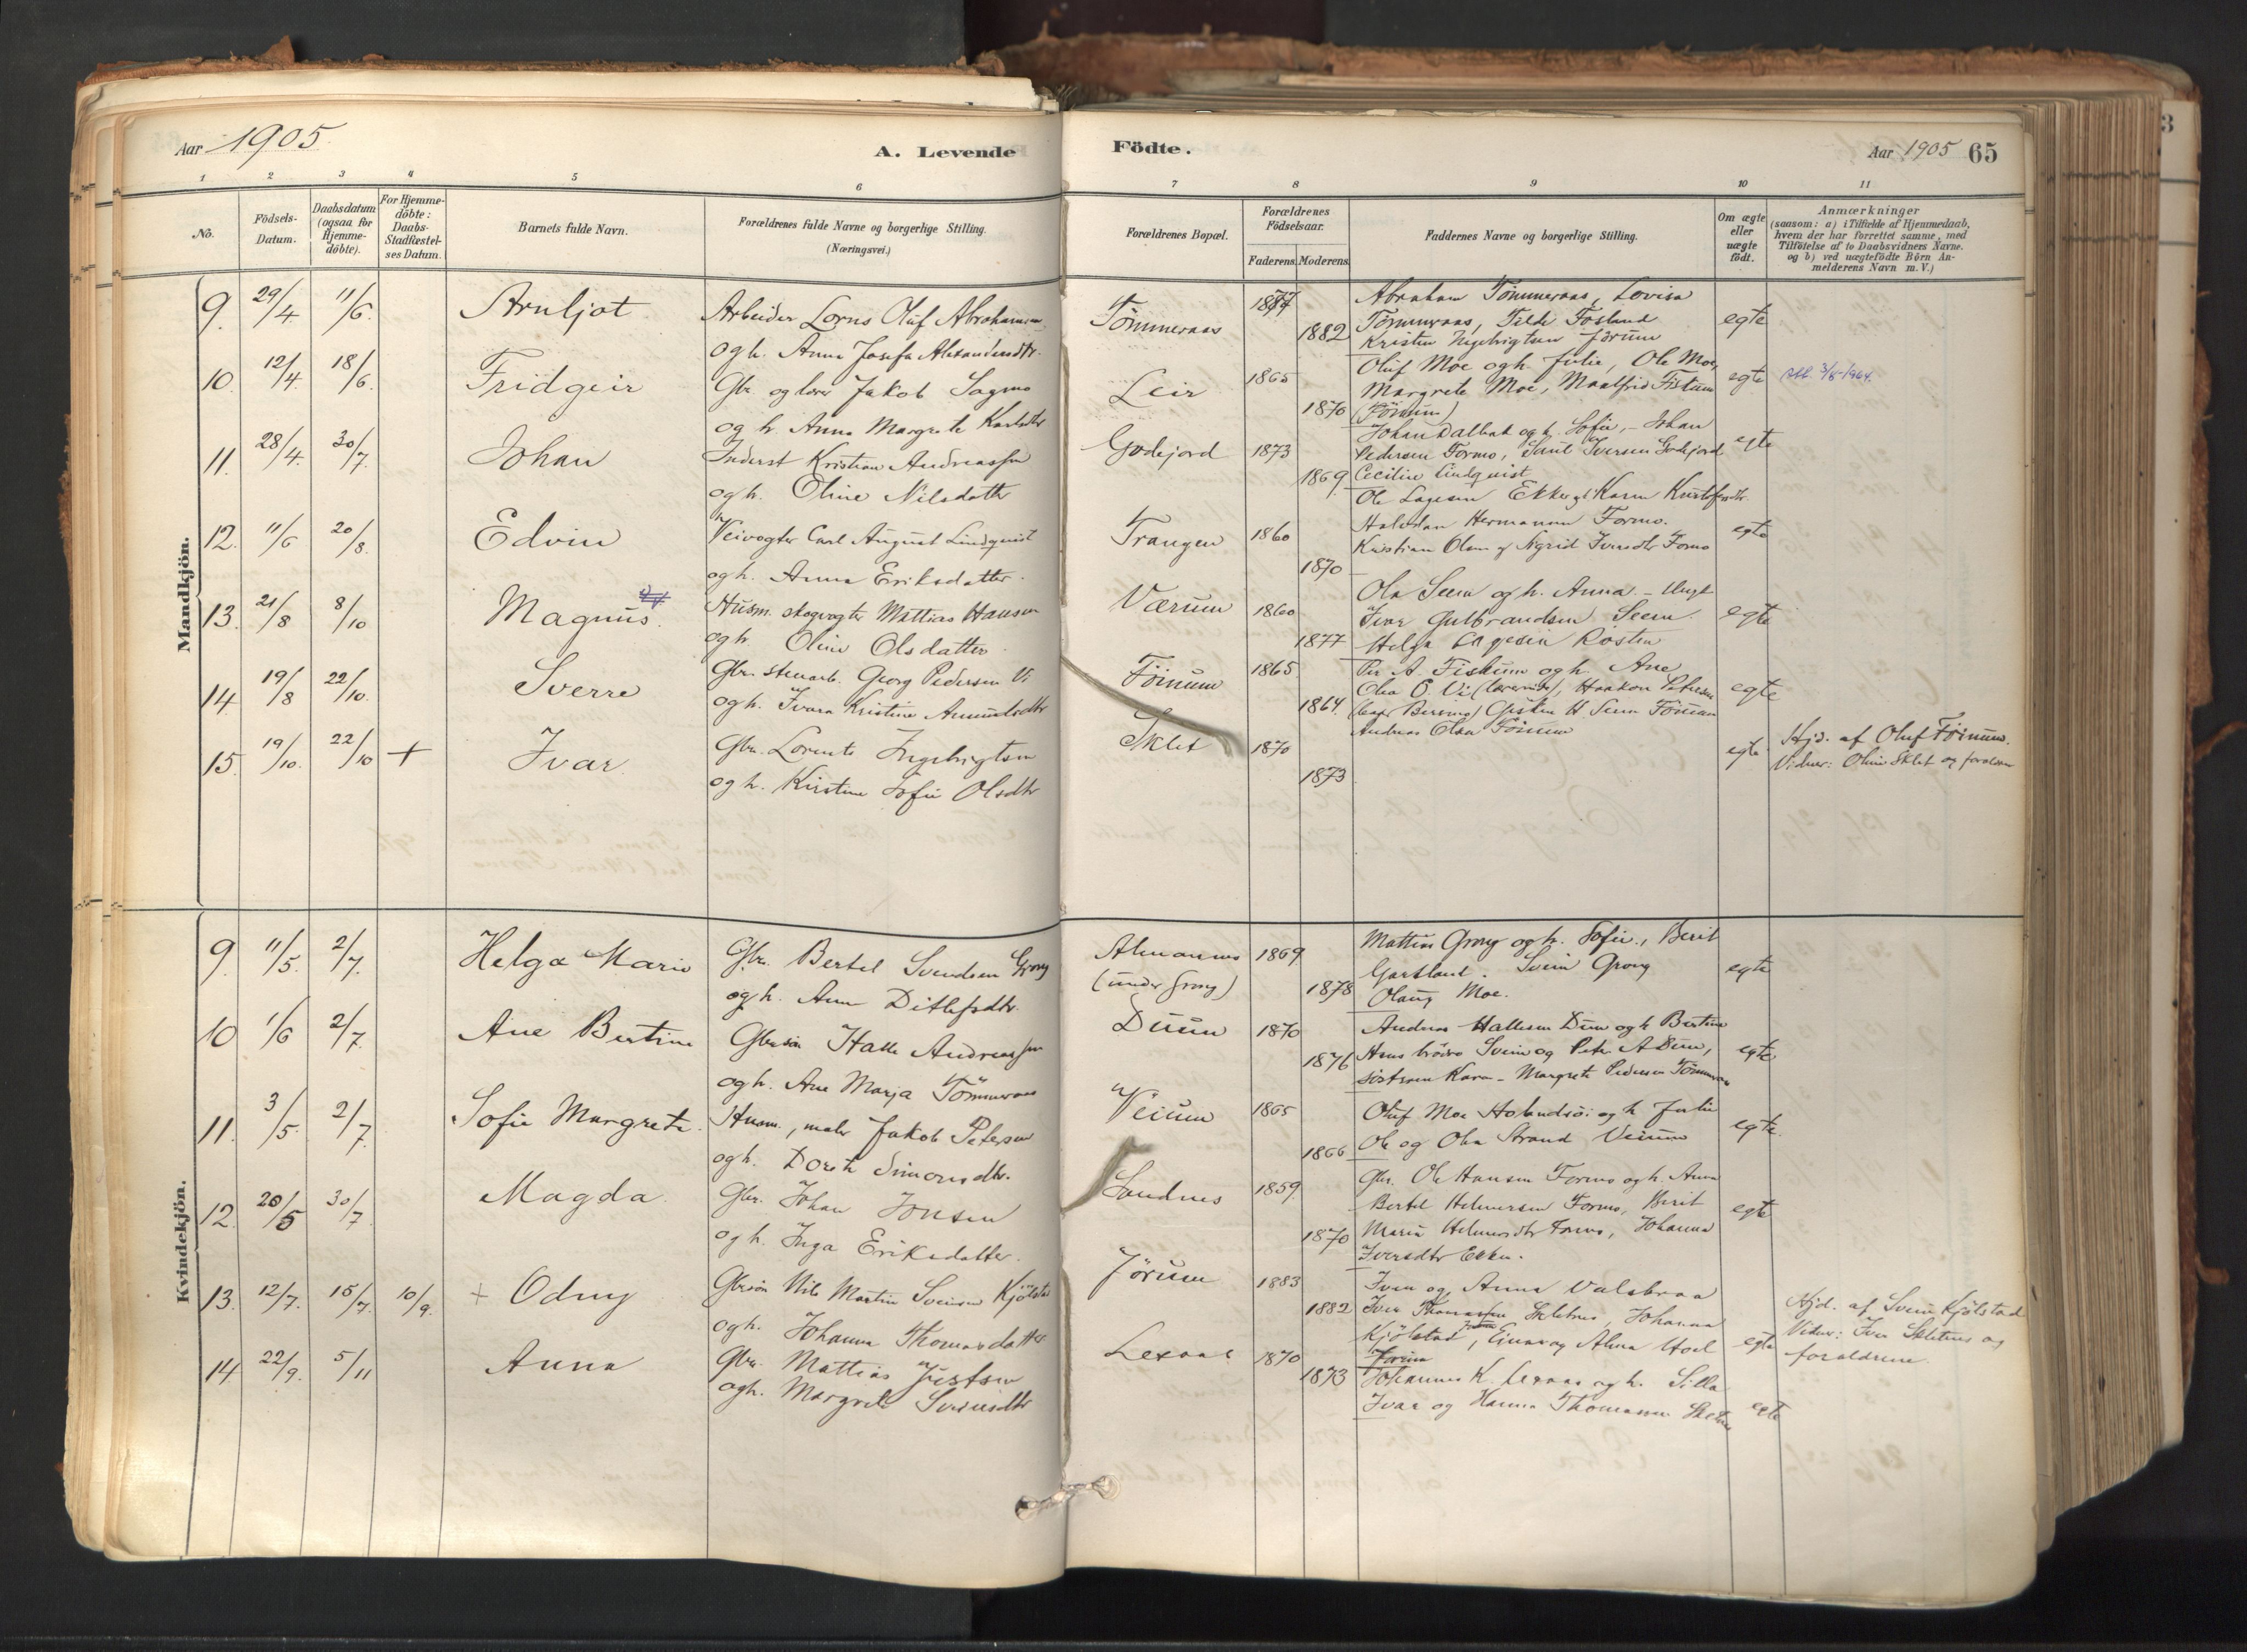 Aar 1905.
A. Levende
Födte.
Aar 1905 65
1 2 3 4 5 6 7 8 9 10 11
No.
Födsels-
Datum.
Daabsdatum
(ogsaa for
Hjemme-
döbte).
For Hjemme-
döbte:
Daabs-
Stadfæstel-
ses Datum.
Barnets fulde Navn.
Forældrenes fulde Navne og borgerlige Stilling.
(Næringsvei.)
Forældrenes Bopæl.
Forældrenes
Födselsaar.
Faderens. Moderens.
Faddernes Navne og borgerlige Stilling.
Om ægte
eller
uægte
födt.
Anmærkninger
(saasom: a) i Tilfælde af Hjemmedaab,
hvem der har forrettet samme, med
Tilföielse af to Daabsvidners Navne.
og b) ved uægtefödte Börn An-
melderens Navn m. V.)
Mandkjön.
9. 29/4. 11/6. Arnljot
Arbeider Lorns Oluf Abrahamsen
og h. Anna Josefa Alexandersdtr.
Tömmeraas
1882
Abraham Tömmeraas, Lovisa
Tömmeraas, Tilde Fosland
Kristen Ingebrigtsen Jörum
egte
10. 12/4. 18/6. Fridgeir
Gbr. og lærer Jakob Sagmo
og h. Anna Margrete Karlsdtr
Leir
1865
1870
Oluf Moe og h. Julie, Ole Moe,
Margrete Moe, Maalfrid Fiskum
(Föinum)
egte
3/8-1964.
11. 28/4. 30/7. Johan
Inderst Kristian Andreassen
og h. Oline Nilsdatter
Godejord
1873
1869
Johan Dalbak og h. Sofie, - Johan
Pedersen Formo, Iversen Godejord
Cecilie Lindquist
egte
12. 11/6 20/8. Edvin
Veivogter Carl August Lindquist
og h. Anna Eriksdatter.
Trangen
1860
1870
Ole Lagesen Ekker og h Karen Kristofersdtr.
Halvdan Hermansen Formo.
Kristian Olsen og Sigrid Iversdtr Formo
egte
13. 21/8 8/10 Magnus.
Husm. skogvogter Mattias Hansen
og h. Oline Olsdatter.
Værum
1860
1877
Ola Seem og h. Anna. - Ungk
Ivar Gulbrandsen Seem.
Helga Aagesen Rosten
egte
14. 19/8 22/10. Sverre
Gbr. stenarb. Georg Pedersen Vi
og h. Ivara Kristine Amundsdtr
Föinum
1865
1864.
Per A. Fiskum og h. Ane
Olea O. Vi (lærerinde), Haakon Petersen
Gisken H. Seem Föinum
Andreas Olsen Föinum
egte
15. 19/10. 22/10 + Ivar
Gbr. Lorents Ingebrigtsen
og h. Kirstine Sofie Olsdtr
Sklet
1870
1873
egte
Hjd. af Oluf Föinum.
Vidner: Oline Sklet og forældrene
Kvindekjön.
9. 11/5. 2/7. Helga Marie
Gbr. Bertel Svendsen Grong
og h. Ane Ditlefsdtr.
(under Grong)
1869
1878
Mattias Grong og h. Sofie, Berit
Gartland. Svein Grong
Olaug Moe.
egte
10 1/6 2/7. Ane Bertine
Gbrsön Halle Andreassen
og h. Ane Marja Tömmeraas
Duun
1870
1876
Andreas Hallesen Duun og h Bertine
Hans brödre Svein og Peter A Duun,
söstrene Karen - Margrete Pedersen Tömmeraas
egte
11. 3/5. 2/7. Sofie Margrete.
Husm., maler Jakob Petersen
og h. Dorete Simonsdtr.
Veium
1865
1866
Oluf Moe Holandsöi og h Julie
Ole og Olea Strand Veium
egte.
12. 20/5 30/7 Magda.
Gbr. Johan Jonsen
og h. Inga Eriksdatter.
Sandnes
1859
1870
Gbr. Ole Hansen Formo og h. Anna
Bertel Helmersen Formo, Berit
Maria Helmersdtr Formo, Johanna
Iversdtr Ekker.
egte
13. 12/7. 15/7. 10/9. + Odny
Gbrsön Nils Martin Sveinsen Kjölstad
og h. Johanna Thomasdatter
Jörum
1883
1882
Iver og Anna Valsbraa
Iver Thomassen Skletmo, Johanna
Kjölstad, Einar og Alma Hoel
Jörum
egte
Hjd. af Svein Kjölstad
Vidner: Iver Skletmo og
forældrene.
14. 22/9. 5/11 Anna
Gbr. Mattias Justsen
og h. Margrete Sveinsdtr
Lexaas
1870
1873
Johannes K. Lexaas og h. Silla
Ivar og Hanna Thomassen
egte